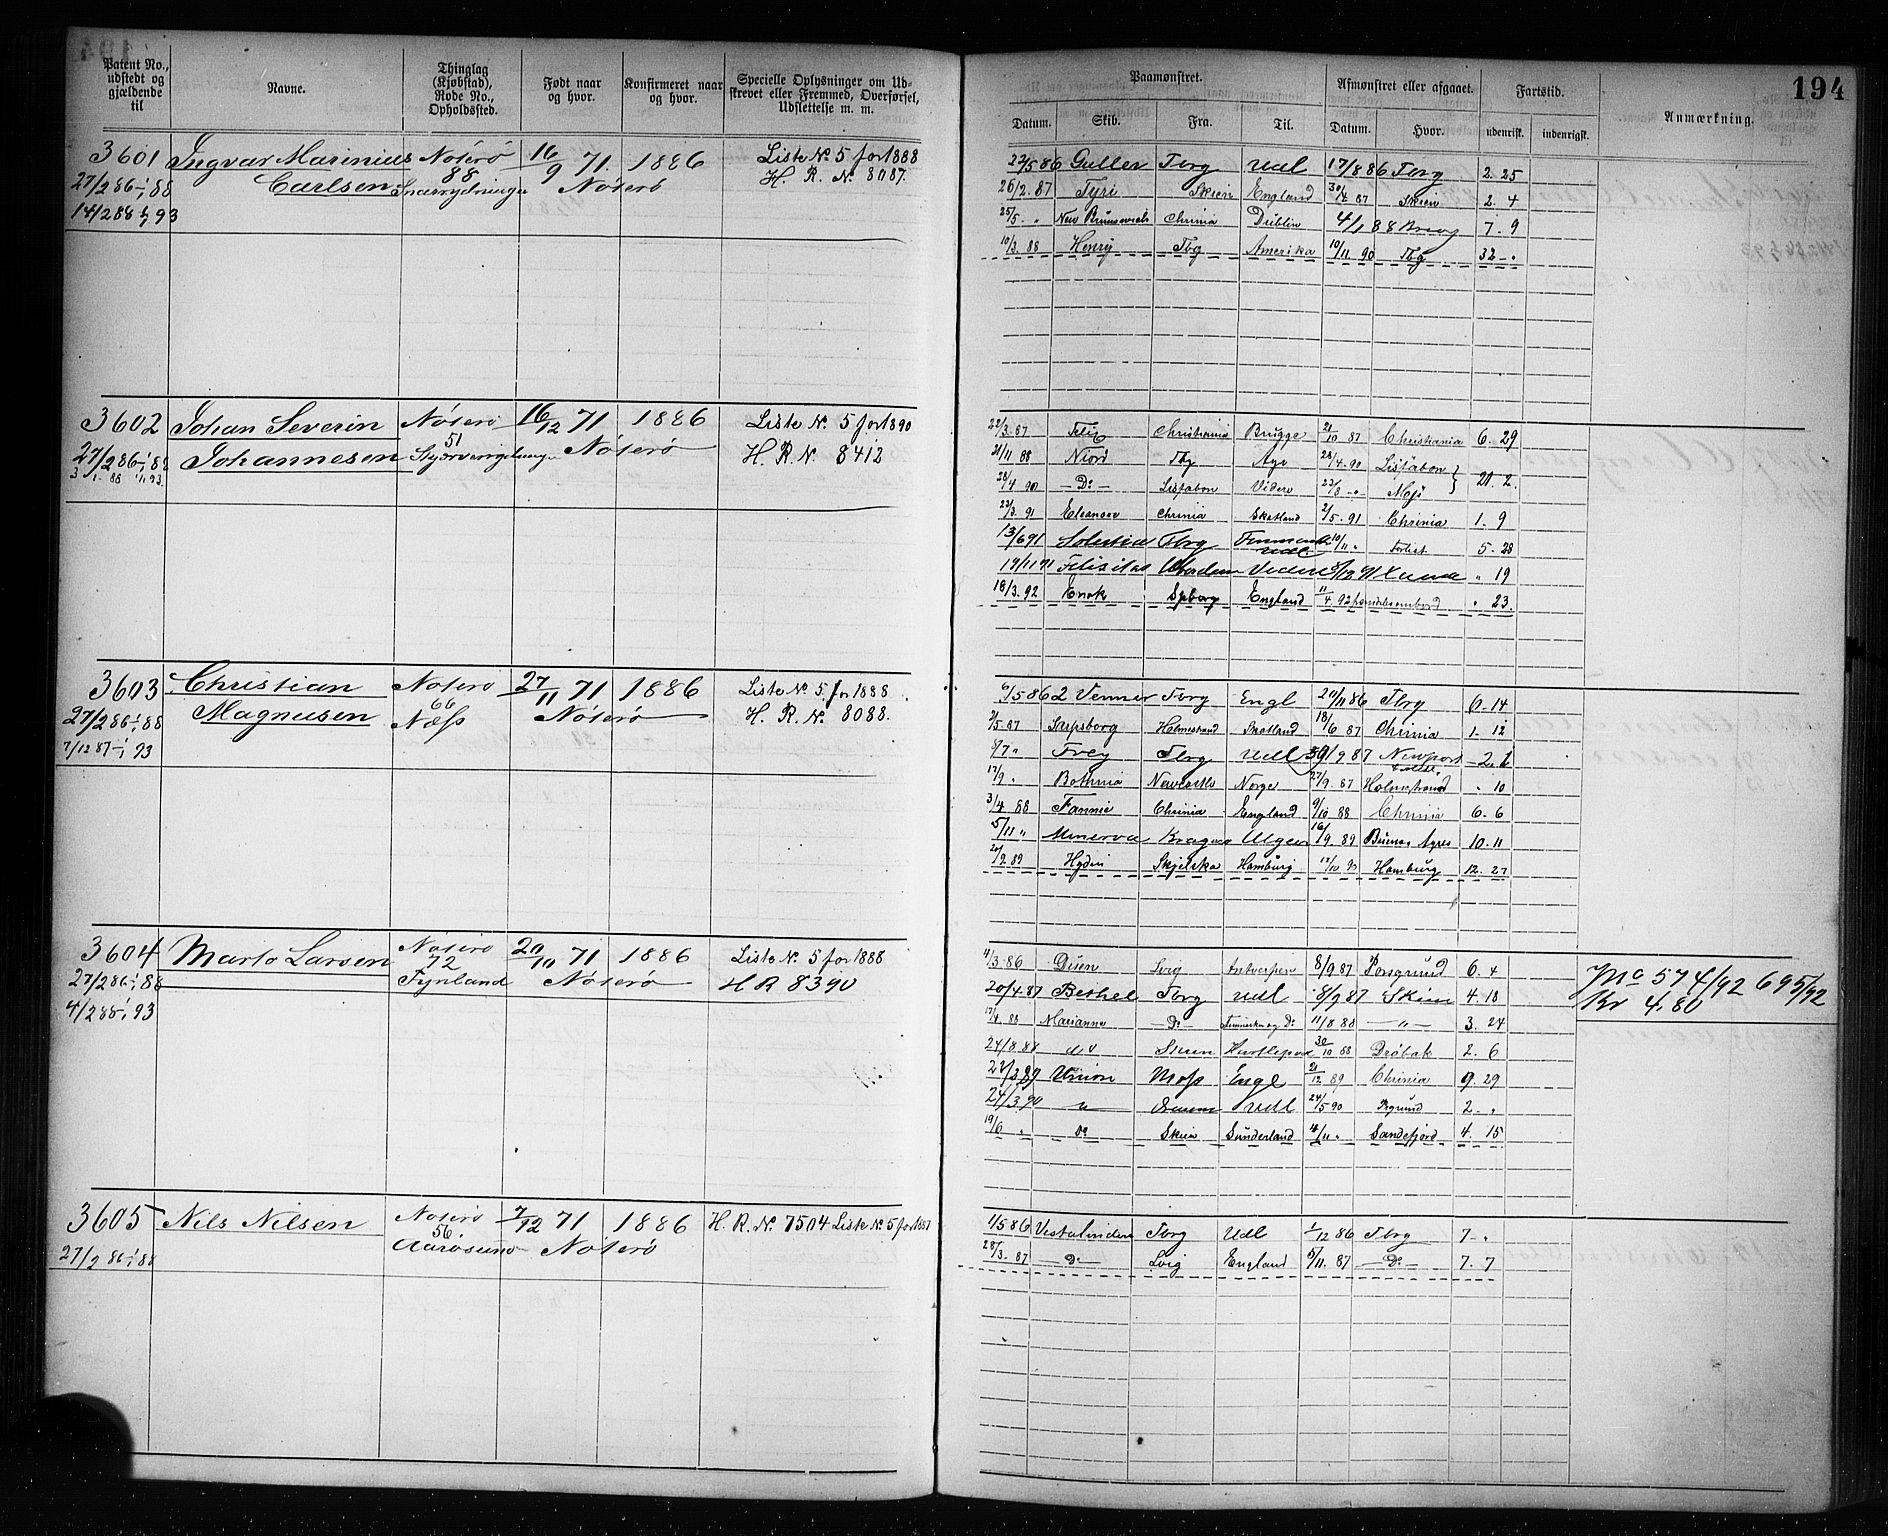 194
Patent No., udstedt og gjældende til
Navne.
Thinglag (Kjøbstad), Rode No., Opholdssted.
Født naar og hvor.
Konfirmeret naar og hvor.
Specielle Oplysninger om Udskrevet eller Fremmed, Overførsel, Udslettelse m. m.
Paamønstret.
Afmønstret eller afgaaet.
Fartstid.
Anmærkning.
Datum. Skib. Fra. Til. Datum. Hvor. udenrigsk. indenrigsk.
3601 Ingvar Marinius Nøterø 16/9 71. 1886 Liste No 5 for 1888
27/2 86 1/1 88 Carlsen 88 Nøterø H. R. No 8087.
14/2 88 1/1 93
22/5 86 Guller Tbrg Udl 17/8 86 Tbrg 2. 25
26/2. 87 Tyri Skien England 30/4 87 Skien 2. 4
25/5 - " New Brunswick Chrinia Dublin 4/1 88 7. 9
10/3. 88 Henry Tbg Amerika 10/11. 90 Tbg 32 - "
3602 Johan Severin Nøterø 16/12 71 1886 Liste No 5 for 1890
27/2 86 1/1 88 Johannesen 51 Nøterø H. R. No. 8412
3/1 88 1/1 93.
22/3. 87 Christiania Brugge 21/10 87 Christiania 6. 29
21/11 88 Niord Tbg 28/4. 90 Lissabon
28/4 90 - Do - Lissabon Videre 23/8 - " 20. 2.
23/3. 91 Eleanore Chrinia Skotland 2/5. 91 Chrinia 1. 9
13/6 91 Tbrg Udl. 10/11 " Forlist 5. 28
19/11 91 Felicitas Videre " 19
18/3. 92 Enok Spborg England 11/4 92 " 23.
3603 Christian Nøterø 27/11 71 1886 Liste No 5 for 1888
27/2 86 1/1 88 Magnusen 66 Næss Nøterø H. R. No. 8088.
7/12 87 1/1 93
6/5 86 2 Venner Tbrg Engl 20/11 86 Tbrg 6. 14
2/5. 87 Sarpsborg Holmestrand Skotland 18/6 87 Chrinia 1. 12
6/7 " Frey Tbrg Udl 9 87 Newport 2. 1
17/9 " Bothnia Newcastle Norge 27/9. 87 Holmestrand " 10
3/4 88 Fannie Chrinia England 9/10 88 Chrinia 6. 6
5/11 " Minerva Kragerø Algier 16/9. 89 Buenos Ayres 10. 11
20/9. 89 Hydin Hamburg 17/10 90 Hamburg 12. 27
3604 Marto Larsen Nøterø 20/10 71 1886 Liste No. 5 for 1888
27/2 86 1/1 88 72 Fynland Nøterø H R 8390
4/2 88 1/1 93
11/3. 86 Disen Lvig Antwerpen 8/9 87 Porsgrund 6. 4
20/4. 87 Bethel Tbrg Udl 8/9 87 Skien 4. 18
17/4. 88 Marianne - Do - 11/8 88 - " - 3. 24
24/8. 88 do Skien Hartlepool 30/10 88 Drøbak 2. 6
22/3 89 Union Moss Engl 21/12 89 Chrinia 9. 29
24/3 90 " Udl 24/5 90 2. "
19/6 " Do Skien Sunderland 4/11 " Sandefjord 4. 15
Mo 574/92 695/92
Kr 4.80
3605 Nils Nilsen Nøterø 7/12 71 1886 H. R. No. 7504 Liste No 5 for 1887
27/2 86 1/1 88 56 Aarøsund Nøterø
1/5 86 Vestalinden Tbrg Udl 1/12 86 Tbrg 7 - "
28/3. 87 - Do - Lvig England 5/11. 87 - Do - 7. 7